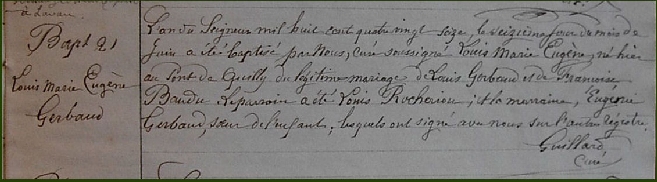 à Lavau.
Bapt 21
Louis Marie Eugène
Gerbaud
L'an du Seigneur mil huit cent quatre vingt seize, le seizième jour du mois de
Juin a été baptisé par Nous, curé soussigné Louis Marie Eugène, né hier
au Pont de Quilly du légitime mariage de Louis Gerbaud et de Françoise
Baudu. Le parrain a été Louis Rochaiou; et la marraine, Eugénie
Gerbaud, sœur de l'enfant, lesquels ont signé avec nous sur l'autre régistre.
Guillard,
Curé